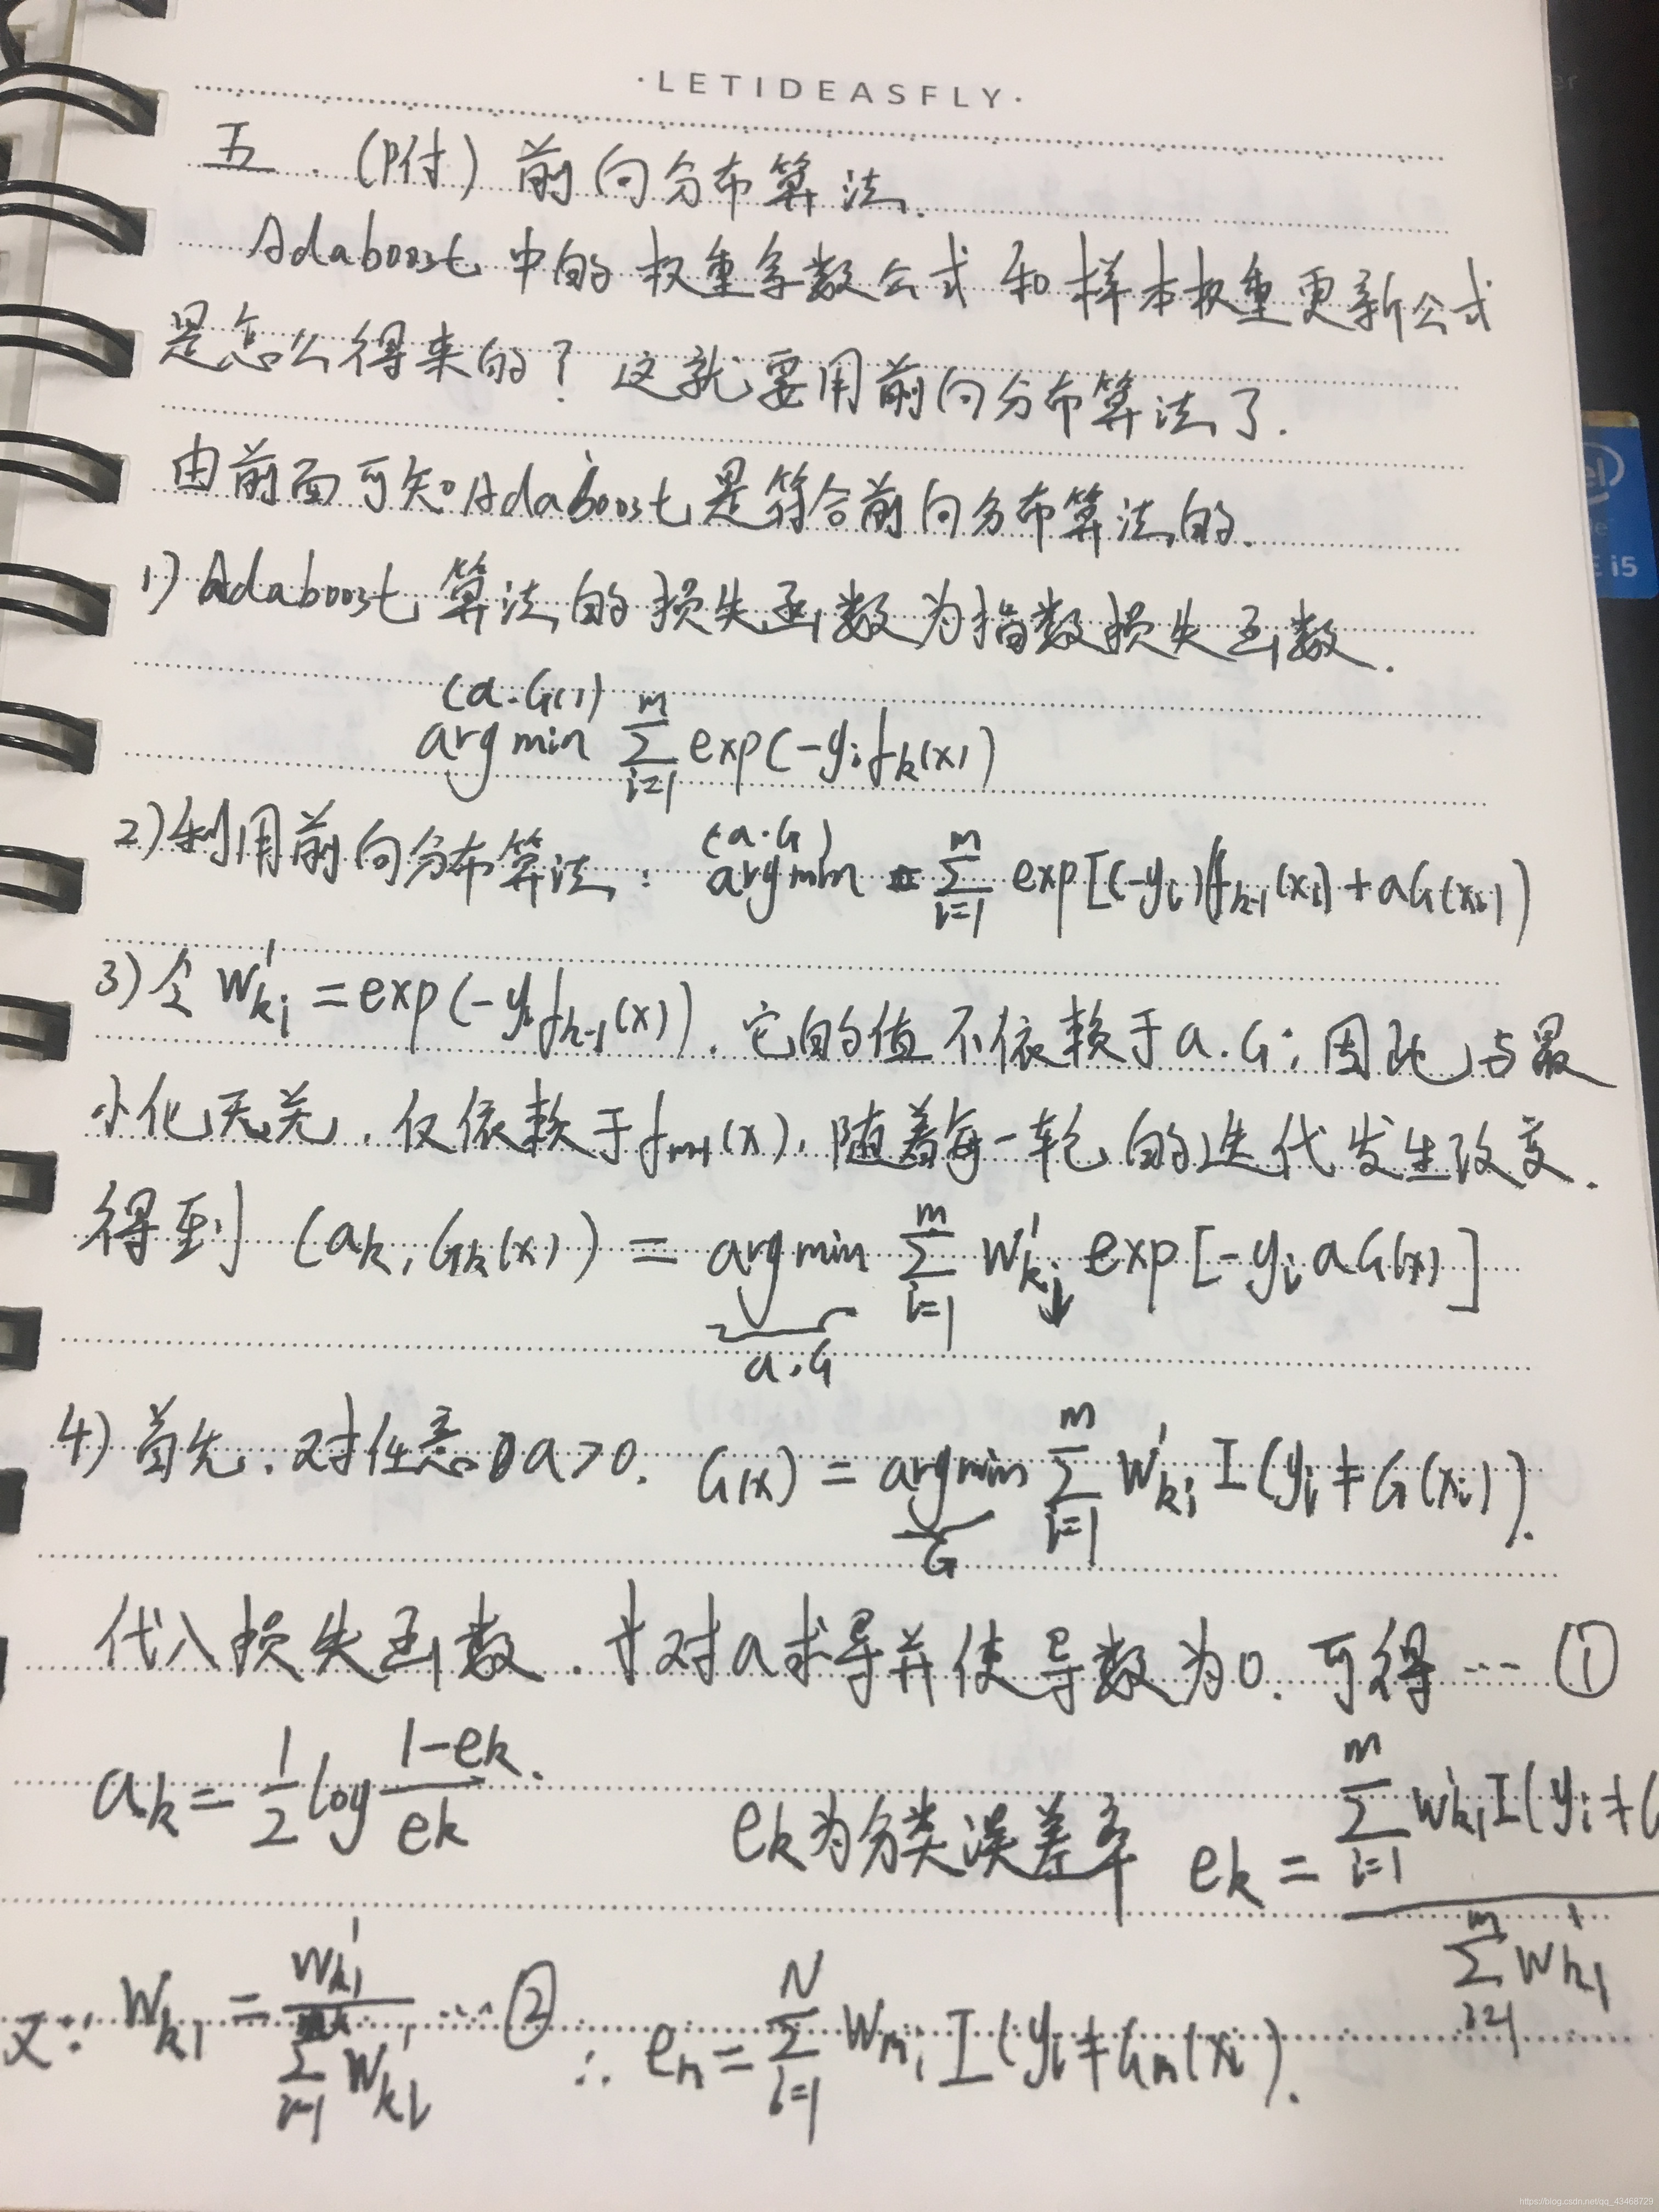 ·LETIDEASFLY·
五.(P付)前向分布算法.
Adaboost中的权重系数公式和样本权重更新公式
是怎么得来的?这就要用前向分布算法了.
由前面可知Adaboost是符合前向分布算法的.
1)Adaboost算法的损失函数为指数损失函数.
(a.G(x))
argmin ∑_{i=1}^{m} exp(-y_i f_k(x))
2)利用前向分布算法: (a.G) argmin ∑_{i=1}^{m} exp[(-y_i)f_{k-1}(x_i)+aG(x_i))
3)令 W'_{ki}=exp(-y_i f_{k-1}(x)).它的值不依赖于a.G;因此与最
小化无关.仅依赖于f_{m-1}(x).随着每一轮的迭代发生改变.
得到 (a_k,G_k(x))=argmin ∑_{i=1}^{m} W'_{ki} exp[-y_i aG(x)]
a.G
4)首先.对任意a>0. G(x)=argmin ∑_{i=1}^{m} W'_{ki} I(y_i≠G(x_i)).
G
代入损失函数.对a求导并使导数为0.可得…①
a_k=1/2 log (1-ek)/ek. ek为分类误差率 ek=∑_{i=1}^{m} W'_{ki} I(y_i≠G / ∑_{i=1}^{m} W'_{ki}
又∵ W_{ki}=W'_{ki} / ∑_{i=1} W'_{ki} …② ∴ e_m=∑_{i=1}^{N} W_{mi} I(y_i≠G_m(x_i)).
el
i5
https://blog.csdn.net/qq_43468729